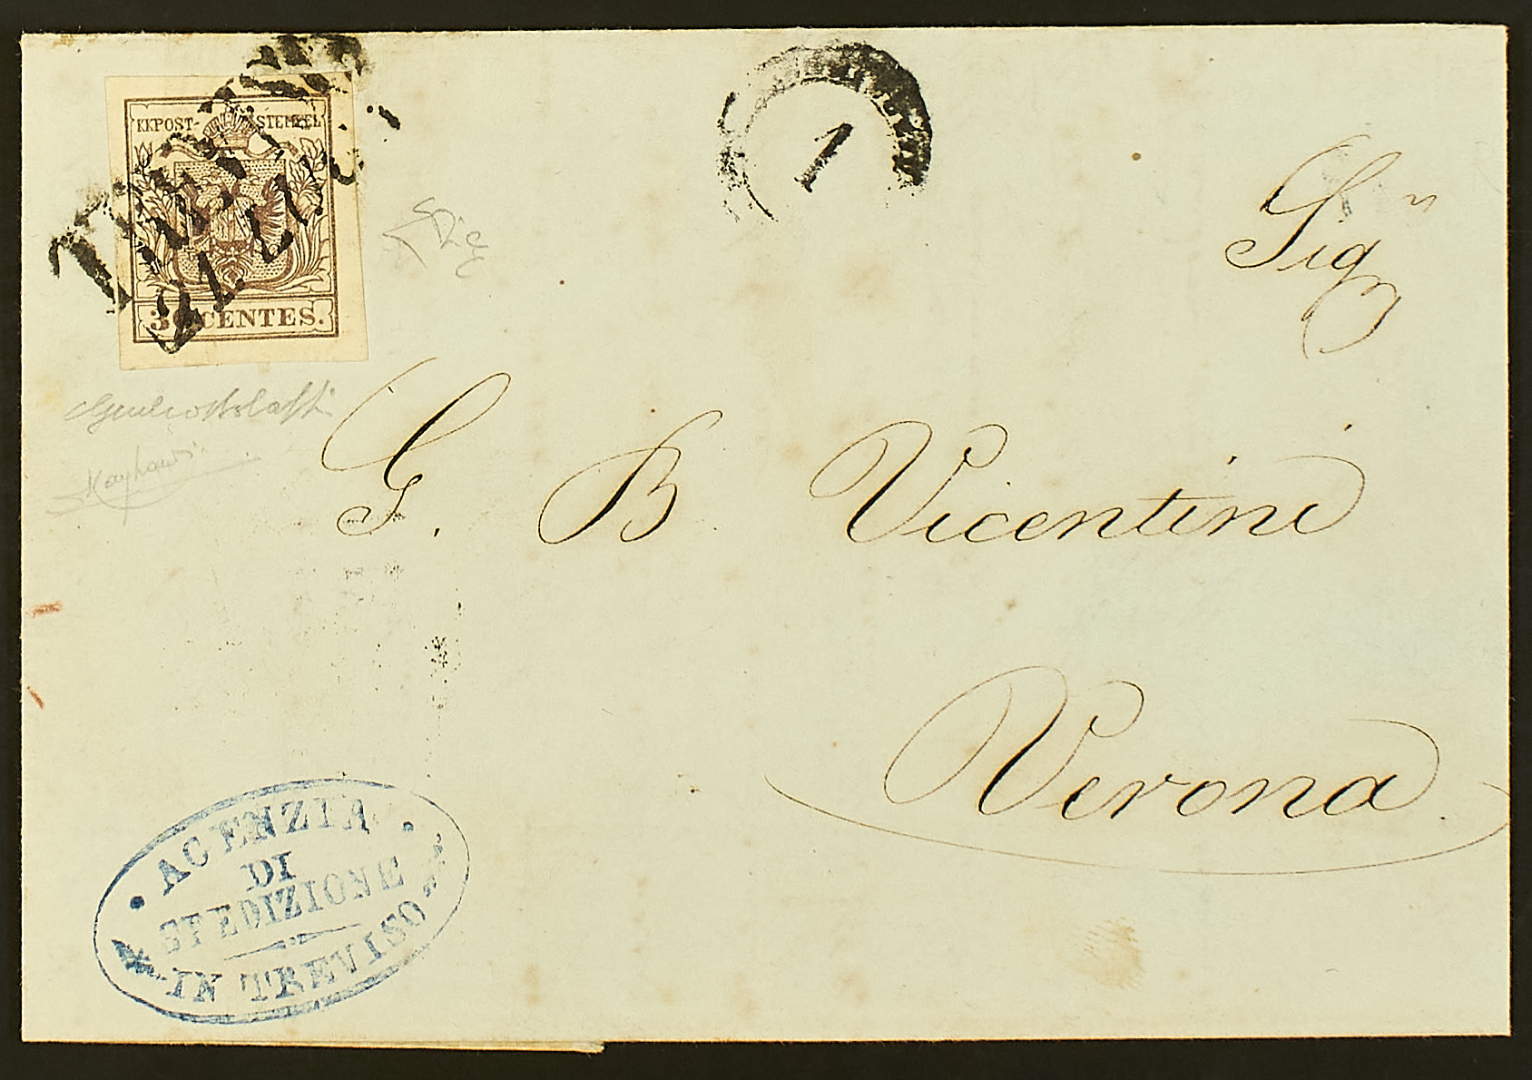 KKPOST-STEMPEL
30 CENTES.
1
Sig.n
G. B Vicentini
Verona
AGENZIA
DI
SPEDIZIONE
IN TREVISO